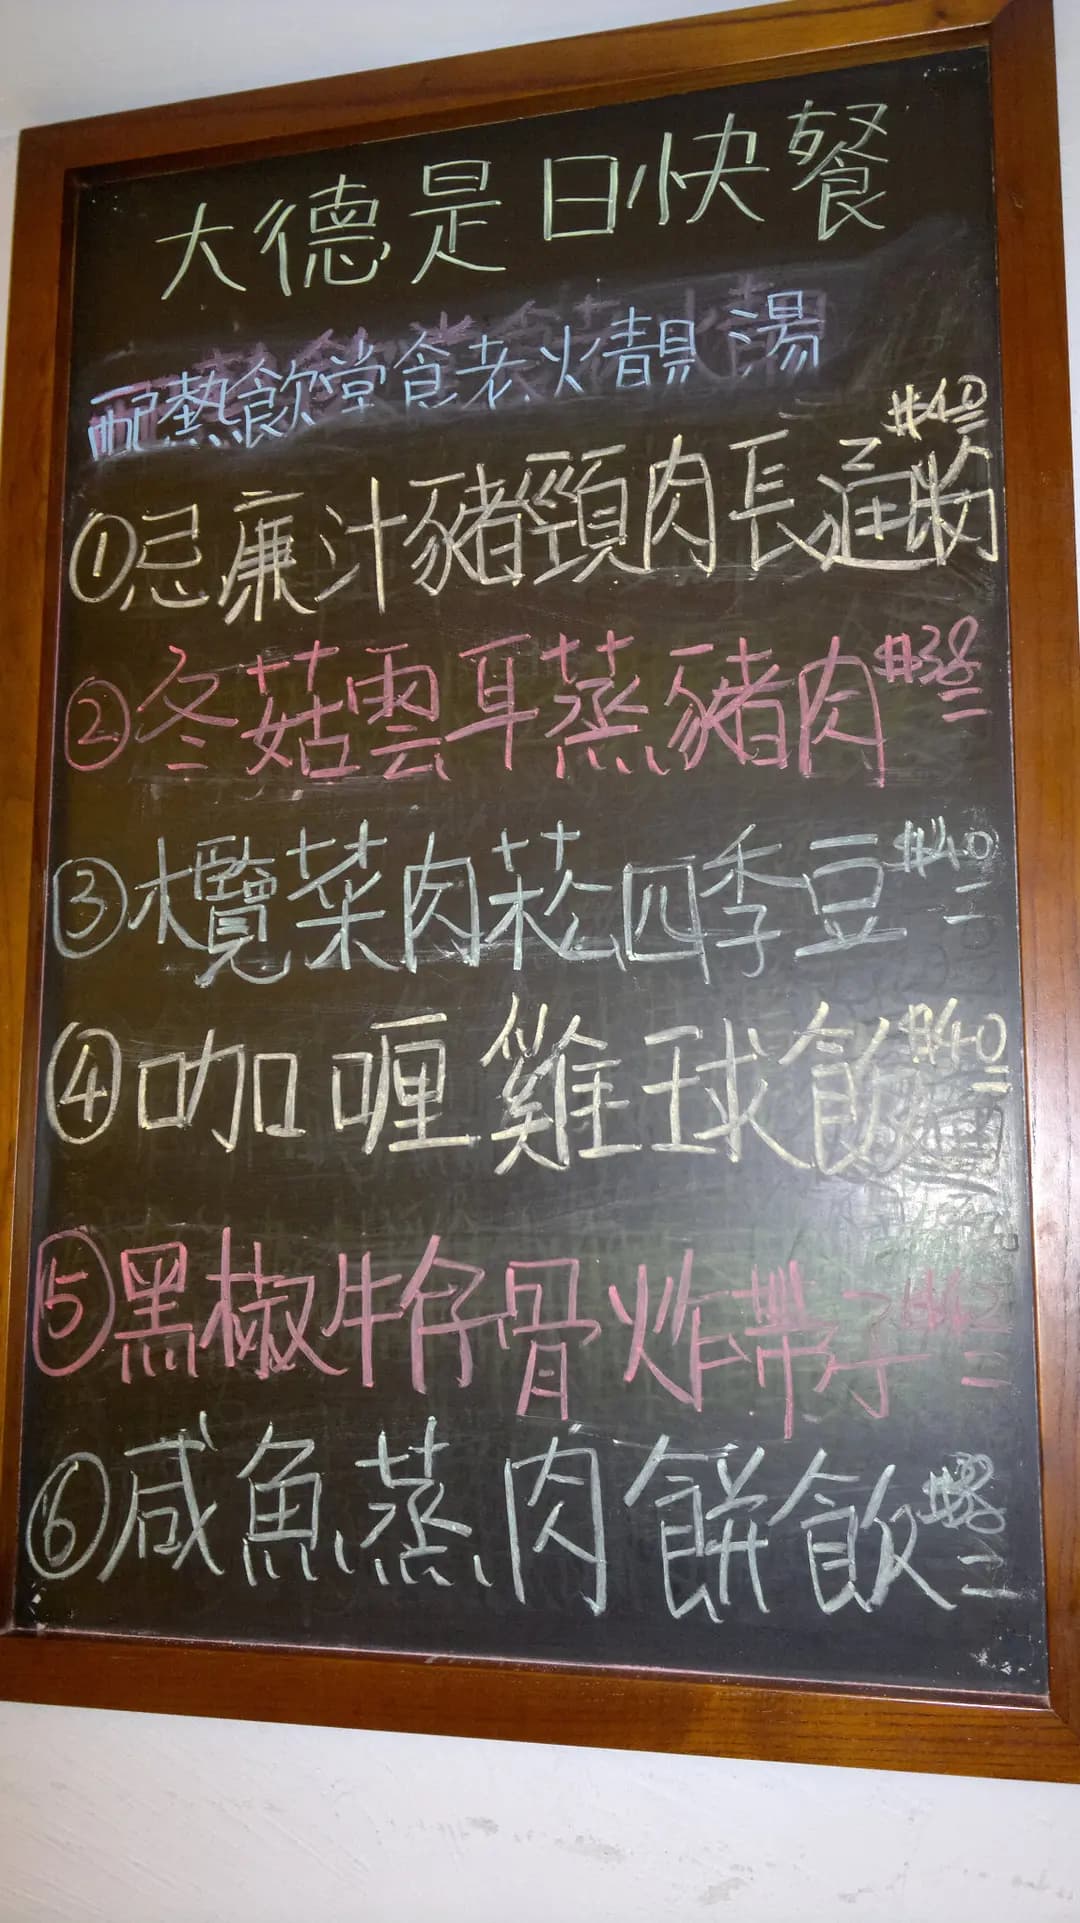 大德是日快餐
配熱飲堂食老火靚湯
①忌廉汁豬頸肉長通粉 $40
②冬菇雲耳蒸豬肉 $38
③欖菜肉菘四季豆 $40
④咖喱雞球飯 $40
⑤黑椒牛仔骨炸帶子 $42
⑥咸魚蒸肉餅飯 $38